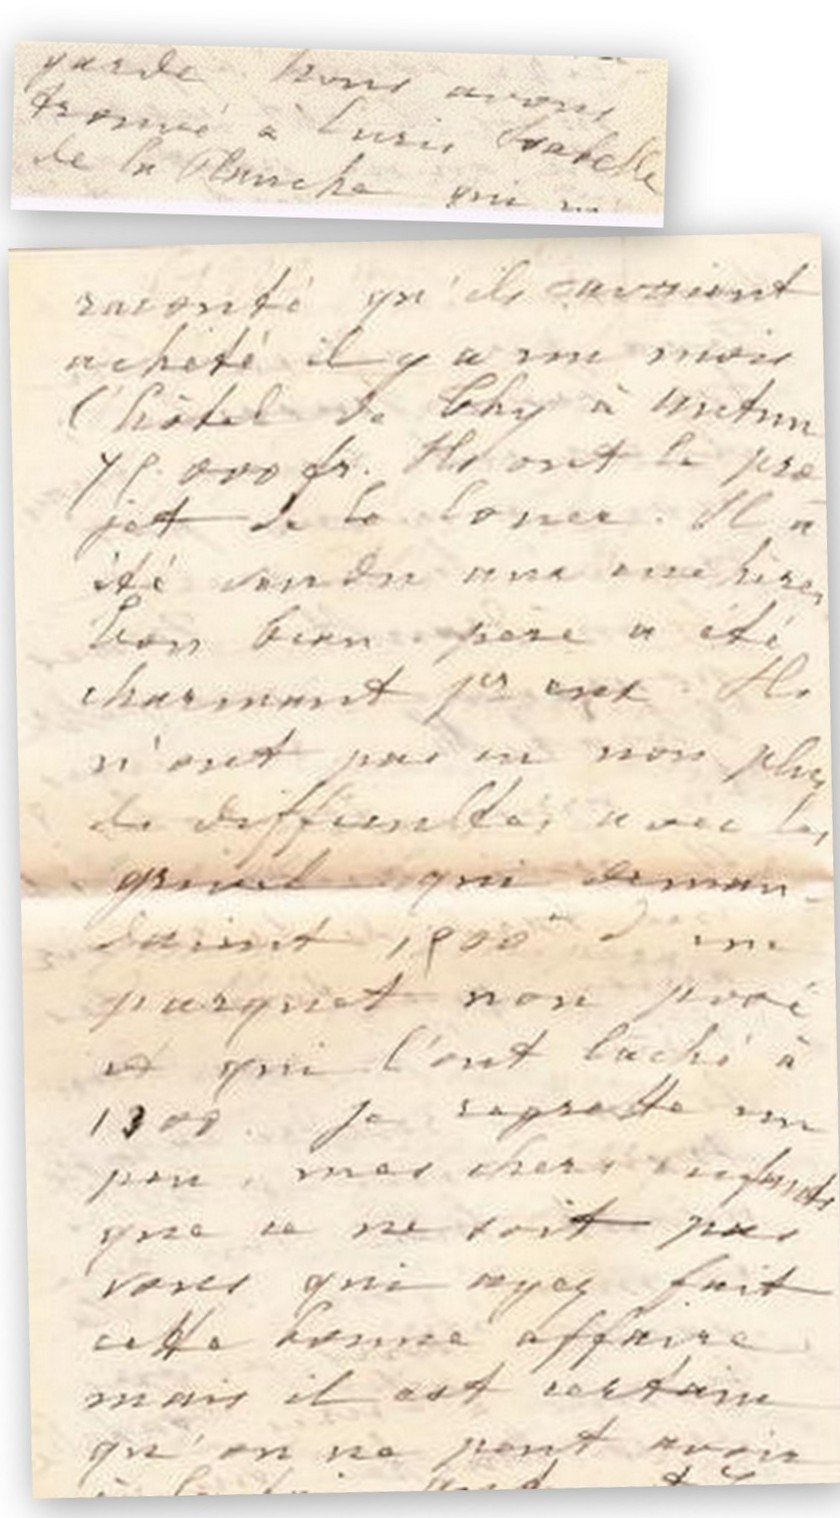 garde. Nous avons
trouvé à Lurie Isabelle
de la Planche qui m'
raconté qu'ils avaient
acheté il y a un mois
l'hôtel de Chy à Autun
75.000 fr. Ils ont le pro
jet de le louer. Il a
été vendu aux enchères,
Son beau père a été
charmant pr eux. Ils
n'ont pas eu non plus
de difficultés avec les
grivel qui deman-
daient 1800 d un
parquet non posé
et qui l'ont laché à
1300. Je regrette un
peu, mes chers enfants
que ce ne soit pas
vous qui ayez fait
cette bonne affaire
mais il est certain
qu'on ne peut avoir